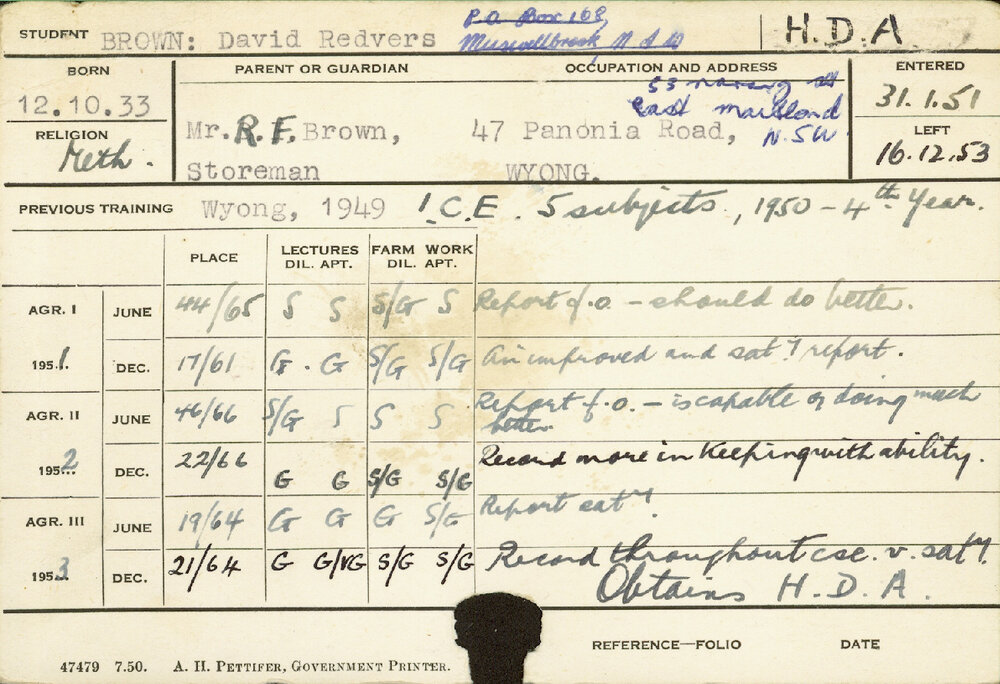 STUDENT BROWN: David Redvers
P.O. Box 168,
Muswellbrook N S W
H.D.A
BORN
12.10.33
RELIGION
Meth.
PARENT OR GUARDIAN OCCUPATION AND ADDRESS
53 St
East Maitland
N.SW
Mr. R.F. Brown, 47 Panonia Road,
Storeman WYONG.
ENTERED
31.1.51
LEFT
16.12.53
PREVIOUS TRAINING Wyong, 1949 I.C.E. 5 subjects, 1950 - 4th Year.
PLACE LECTURES DIL. APT. FARM WORK DIL. APT.
AGR. I JUNE 44/65 S S S/G S Report f.o. - should do better.
1951. DEC. 17/61 G. G S/G S/G An improved and sat.y report.
AGR. II JUNE 46/66 S/G S S S Report f.o. - is capable of doing much
better
1952 DEC. 22/66 G G S/G S/G Record more in keeping with ability.
AGR. III JUNE 19/64 G G G S/G Report saty.
1953. DEC. 21/64 G G/VG S/G S/G Record throughout cse. v. saty.
Obtains H.D.A.
REFERENCE—FOLIO DATE
47479 7.50. A. H. PETTIFER, GOVERNMENT PRINTER.